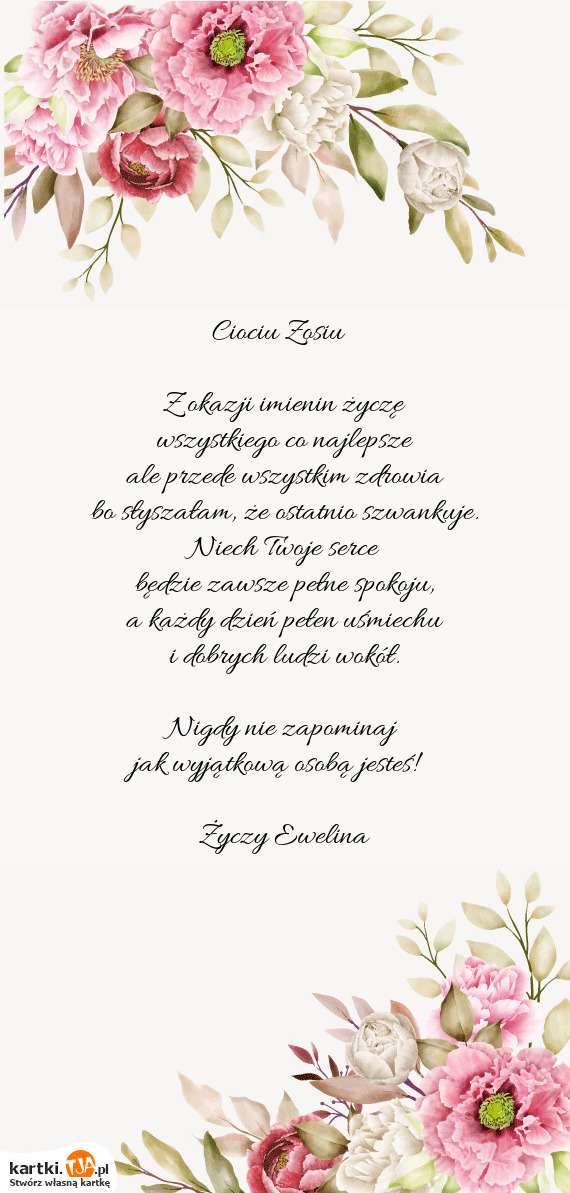 Ciociu Zosiu
Z okazji imienin życzę
wszystkiego co najlepsze
ale przede wszystkim zdrowia
bo słyszałam, że ostatnio szwankuje.
Niech Twoje serce
będzie zawsze pełne spokoju,
a każdy dzień pełen uśmiechu
i dobrych ludzi wokół.
Nigdy nie zapominaj
jak wyjątkową osobą jesteś!
Życzy Ewelina
kartki.TJA.pl
Stwórz własną kartkę